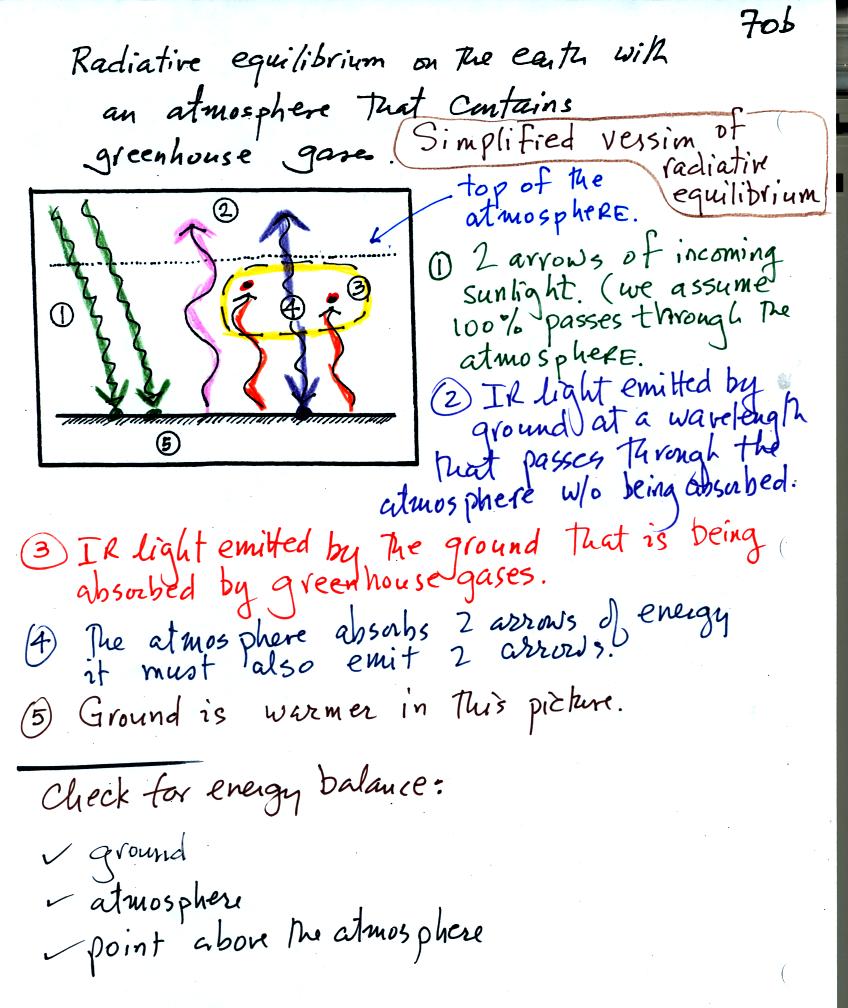 70b
Radiative equilibrium on the earth with
an atmosphere that contains
greenhouse gases.
Simplified version of
radiative
equilibrium
top of the
atmosphERE.
②
①
③
④
⑤
① 2 arrows of incoming
sunlight. (we assume
100% passes through the
atmosphERE.
② IR light emitted by
ground at a wavelength
that passes through the
atmosphere w/o being absorbed.
③ IR light emitted by the ground that is being
absorbed by greenhouse gases.
④ The atmosphere absorbs 2 arrows of energy
it must also emit 2 arrows.
⑤ Ground is warmer in this picture.
Check for energy balance:
✓ ground
✓ atmosphere
✓ point above the atmosphere